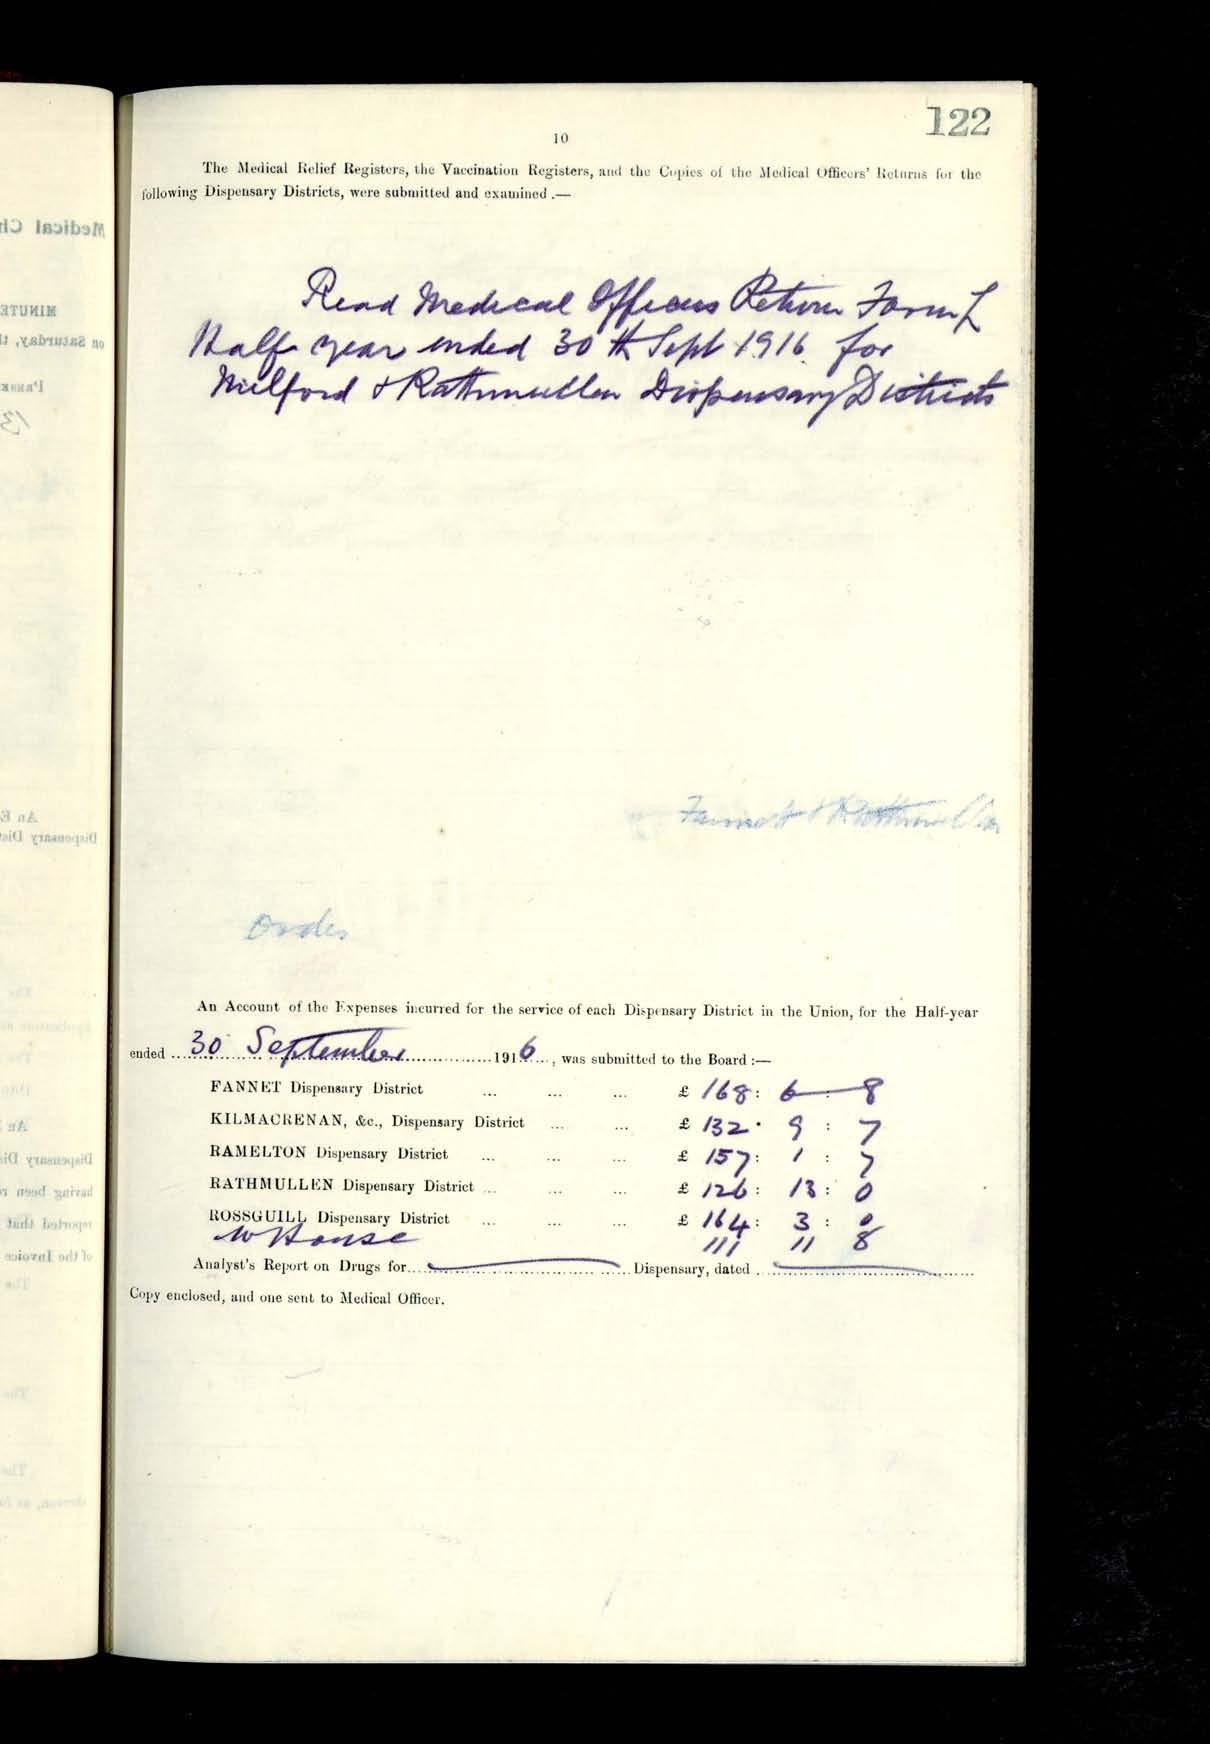 122
10
The Medical Relief Registers, the Vaccination Registers, and the Copies of the Medical Officers' Returns for the
following Dispensary Districts, were submitted and examined :—
Read Medical Officers Return Form L
Half year ended 30th Sept 1916 for
Milford & Rathmullen Dispensary Districts
Fannet & Rathmullen
Order
An Account of the Expenses incurred for the service of each Dispensary District in the Union, for the Half-year
ended 30 September 1916, was submitted to the Board :—
FANNET Dispensary District ... ... ... £ 168 : 6 : 8
KILMACRENAN, &c., Dispensary District ... ... £ 132 : 9 : 7
RAMELTON Dispensary District ... ... ... £ 157 : 1 : 7
RATHMULLEN Dispensary District ... ... ... £ 126 : 13 : 0
ROSSGUILL Dispensary District ... ... ... £ 164 : 3 : 0
W House 111 11 8
Analyst's Report on Drugs for ... Dispensary, dated ...
Copy enclosed, and one sent to Medical Officer.